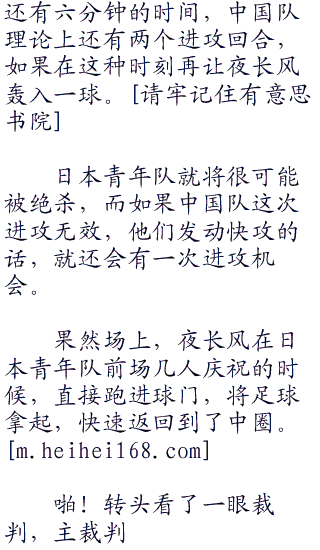 还有六分钟的时间，中国队
理论上还有两个进攻回合，
如果在这种时刻再让夜长风
轰入一球。[请牢记住有意思
书院]
日本青年队就将很可能
被绝杀，而如果中国队这次
进攻无效，他们发动快攻的
话，就还会有一次进攻机
会。
果然场上，夜长风在日
本青年队前场几人庆祝的时
候，直接跑进球门，将足球
拿起，快速返回到了中圈。
[m.heihei168.com]
啪！转头看了一眼裁
判，主裁判